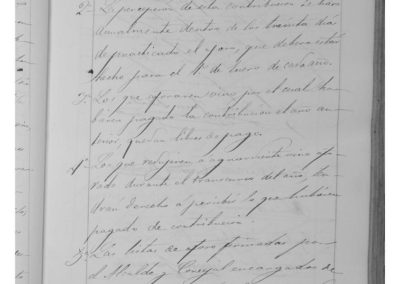 2ª La percepcion de esta contribucion se hara
anualmente dentro de los treinta dias
de practicado el aforo, que debera estar
hecho para el 1º de Enero de cada año.
3ª Los que aforaren vino por el cual ha-
biesen pagado la contribucion el año an-
terior, quedan libres de pago.
4ª Los que redujeren a aguardiente vino afo-
rado durante el transcurso del año, ten-
dran derecho a percibir lo que hubiesen
pagado de contribucion.
5ª Las listas de aforo firmadas por
el Alcalde y Concejal encargados de